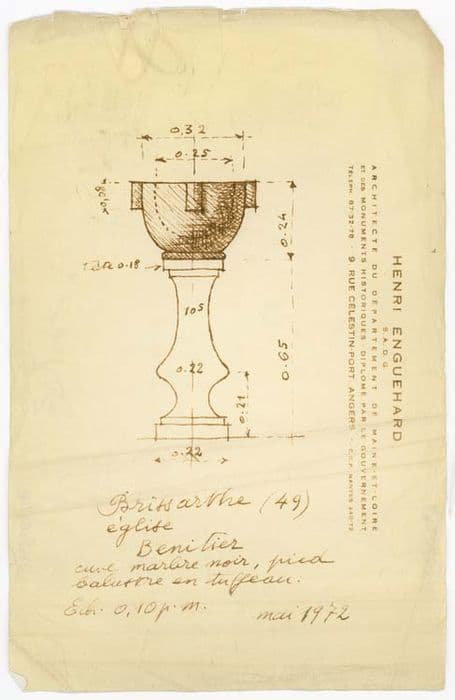 0,32
0.25
0,24
tête 0.18
10⁵
0.65
0.22
0.21
0.22
Brissarthe (49)
église
Benitier
cuve marbre noir, pied
balustre en tuffeau.
Ech. 0,10 p.m.
mai 1972
HENRI ENGUEHARD
S.A.D.G.
ARCHITECTE DU DÉPARTEMENT DE MAINE-ET-LOIRE
ET DES MONUMENTS HISTORIQUES DIPLÔMÉ PAR LE GOUVERNEMENT
TÉLÉPH. 87-32-78 - 9, RUE CÉLESTIN-PORT, ANGERS - C.C.P. NANTES